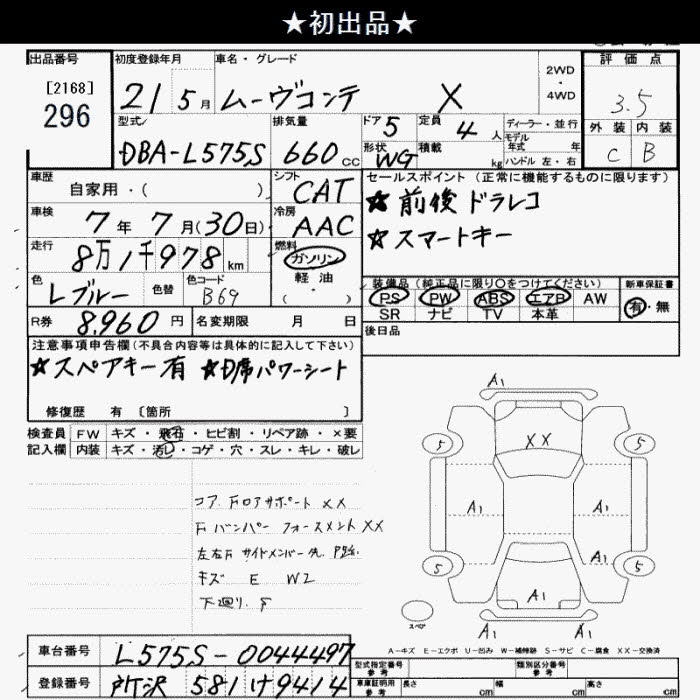 ★初出品★
出品番号
[2168]
296
初度登録年月 車名・グレード
21 5月 ムーヴコンテ X
2WD
・
4WD
評価点
3.5
外装 内装
C B
型式 排気量 ドア 定員
DBA-L575S 660cc 5 4人
形状 積載
WG kg
ディーラー・並行
モデル
年式 年
ハンドル 左・右
車歴
自家用・( )
シフト
CAT
車検
7年7月(30日)
冷房
AAC
走行
8万1千978km
燃料
ガソリン
軽油
・
( )
色 色替 色コード
Lブルー B69
R券 8,960円 名変期限 月 日
セールスポイント (正常に機能するものに限ります)
☆前後ドラレコ
☆スマートキー
装備品 (純正品に限り○をつけてください)
PS PW ABS エアB AW
SR ナビ TV 本革
新車保証書
有・無
後日品
注意事項申告欄(不具合内容等は具体的に記入して下さい)
☆スペアキー有 ☆D席パワーシート
修復歴 有 〔箇所 〕
検査員 FW キズ・飛石・ヒビ割・リペア跡・×要
記入欄 内装 キズ・汚レ・コゲ・穴・スレ・キレ・破レ
コアFロアサポート XX
Fバンパーフォースメント XX
左右Fサイドメンバー先
キズ E W2
下廻り S
A1
XX
5 5
A1 A1
A1
5 5
A1
A1
スペア
A-キズ E-エクボ U-凹み W-補修跡 S-サビ C-腐食 XX-交換済
車台番号 L575S-0044497
登録番号 所沢 581 け 9414
型式指定番号
参考
類別区分番号
参考
車庫証明用
参考
長さ cm 幅 cm 高さ cm